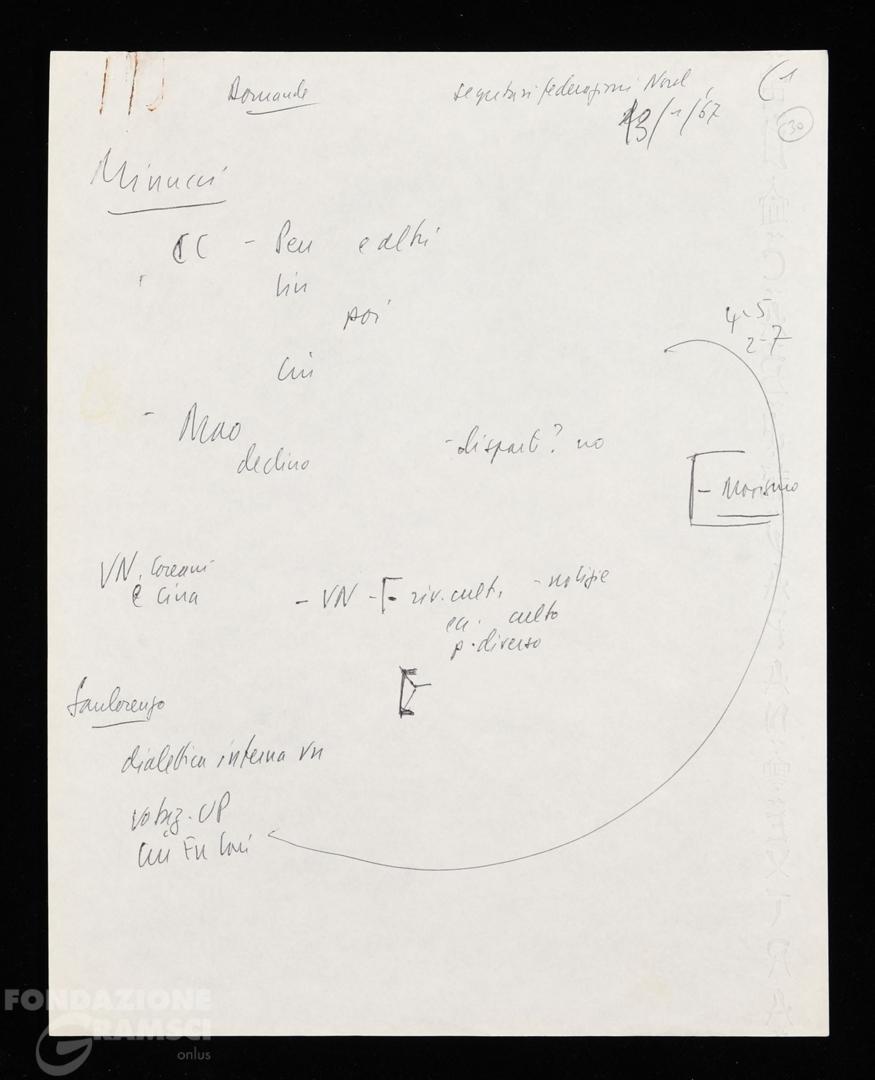 Domande
segretari federazioni Nord
13/1/67
(1
30
Minucci
CC - Pen e altri
Lin
poi
- Mao
declino
- dispart? no
4-5
2-7
- Maoismo
VN, coreani
e Cina
- VN - riv. cult. - notizie
culto
p. diverso
Sanlorenzo
dialettica interna VN
votaz. UP
FONDAZIONE
GRAMSCI
onlus